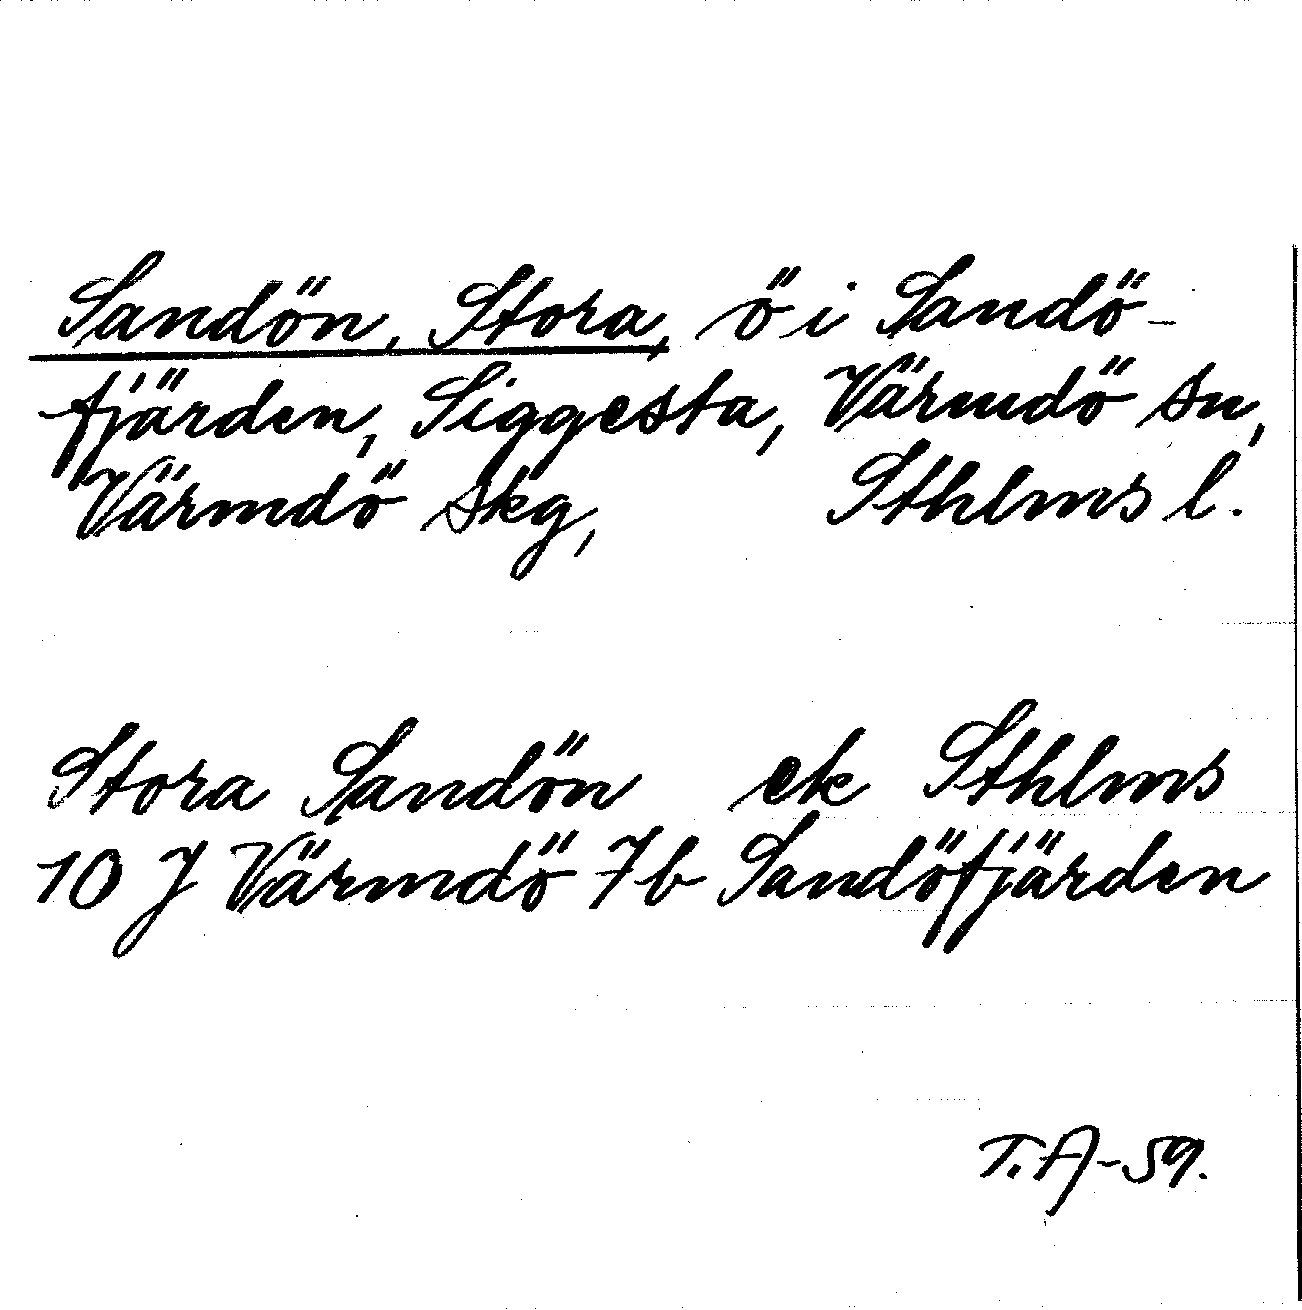 Sandön, Stora, ö i Sandö-
fjärden, Siggesta, Värmdö sn,
Värmdö skg, Sthlms l.
Stora Sandön ek Sthlms
10 J Värmdö 7b Sandöfjärden
T.A-59.